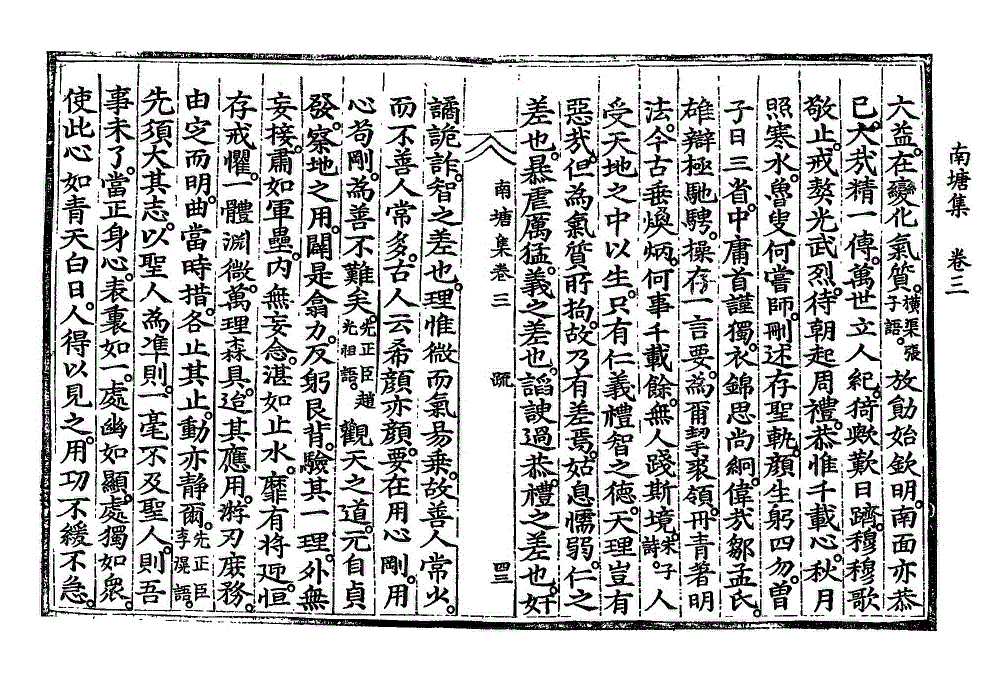 南塘集　卷三
六益。在變化氣質。橫渠張子語。放勛始欽明。南面亦恭
已。大哉精一傳。萬世立人紀。猗歟歎日躋。穆穆歌
敬止。戒獒光武烈。待朝起周禮。恭惟千載心。秋月
照寒水。魯叟何嘗師。刪述存聖軌。顏生躬四勿。曾
子日三省。中庸首謹獨。衣錦思尚絅。偉哉鄒孟氏。
雄辯極馳騁。操存一言要。爲爾挈裘領。丹靑著明
法。今古垂煥炳。何事千載餘。無人踐斯境。朱子詩。人
受天地之中以生。只有仁義禮智之德。天理豈有
惡哉。但爲氣質所拘。故乃有差焉。姑息懦弱。仁之
差也。暴虐厲猛。義之差也。謟諛過恭。禮之差也。奸
南塘集卷三　疏　四三
譎詭詐。智之差也。理惟微而氣易乘。故善人常少。
而不善人常多。古人云希顏亦顏。要在用心剛。用
心苟剛。爲善不難矣。先正臣趙光祖語。觀天之道。元自貞
發。察地之用。闢是翕力。反躬艮背。驗其一理。外無
妄接。肅如軍壘。內無妄念。湛如止水。靡有將迎。恒
存戒懼。一體淵微。萬理森具。迨其應用。游刃庶務。
由定而明。曲當時措。各止其止。動亦靜爾。先正臣李滉語。
先須大其志。以聖人爲準則。一毫不及聖人。則吾
事未了。當正身心。表裏如一。處幽如顯。處獨如衆。
使此心如靑天白日。人得以見之。用功不緩不急。